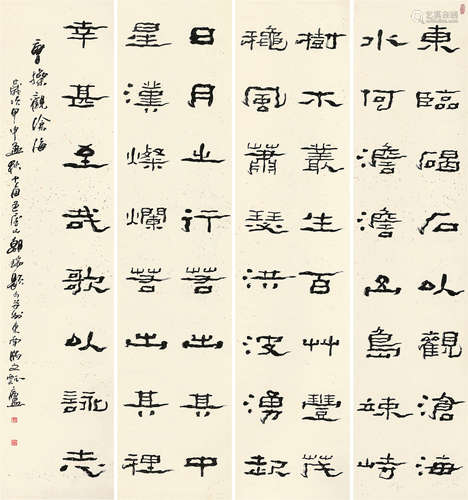 東臨碣石以觀滄海
水何澹澹山島竦峙
樹木叢生百艸豐茂
穐風蕭瑟洪波湧起
日月之行若出其中
星漢燦爛若出其裡
幸甚至哉歌以詠志
曹操觀滄海
歲次甲申孟秋